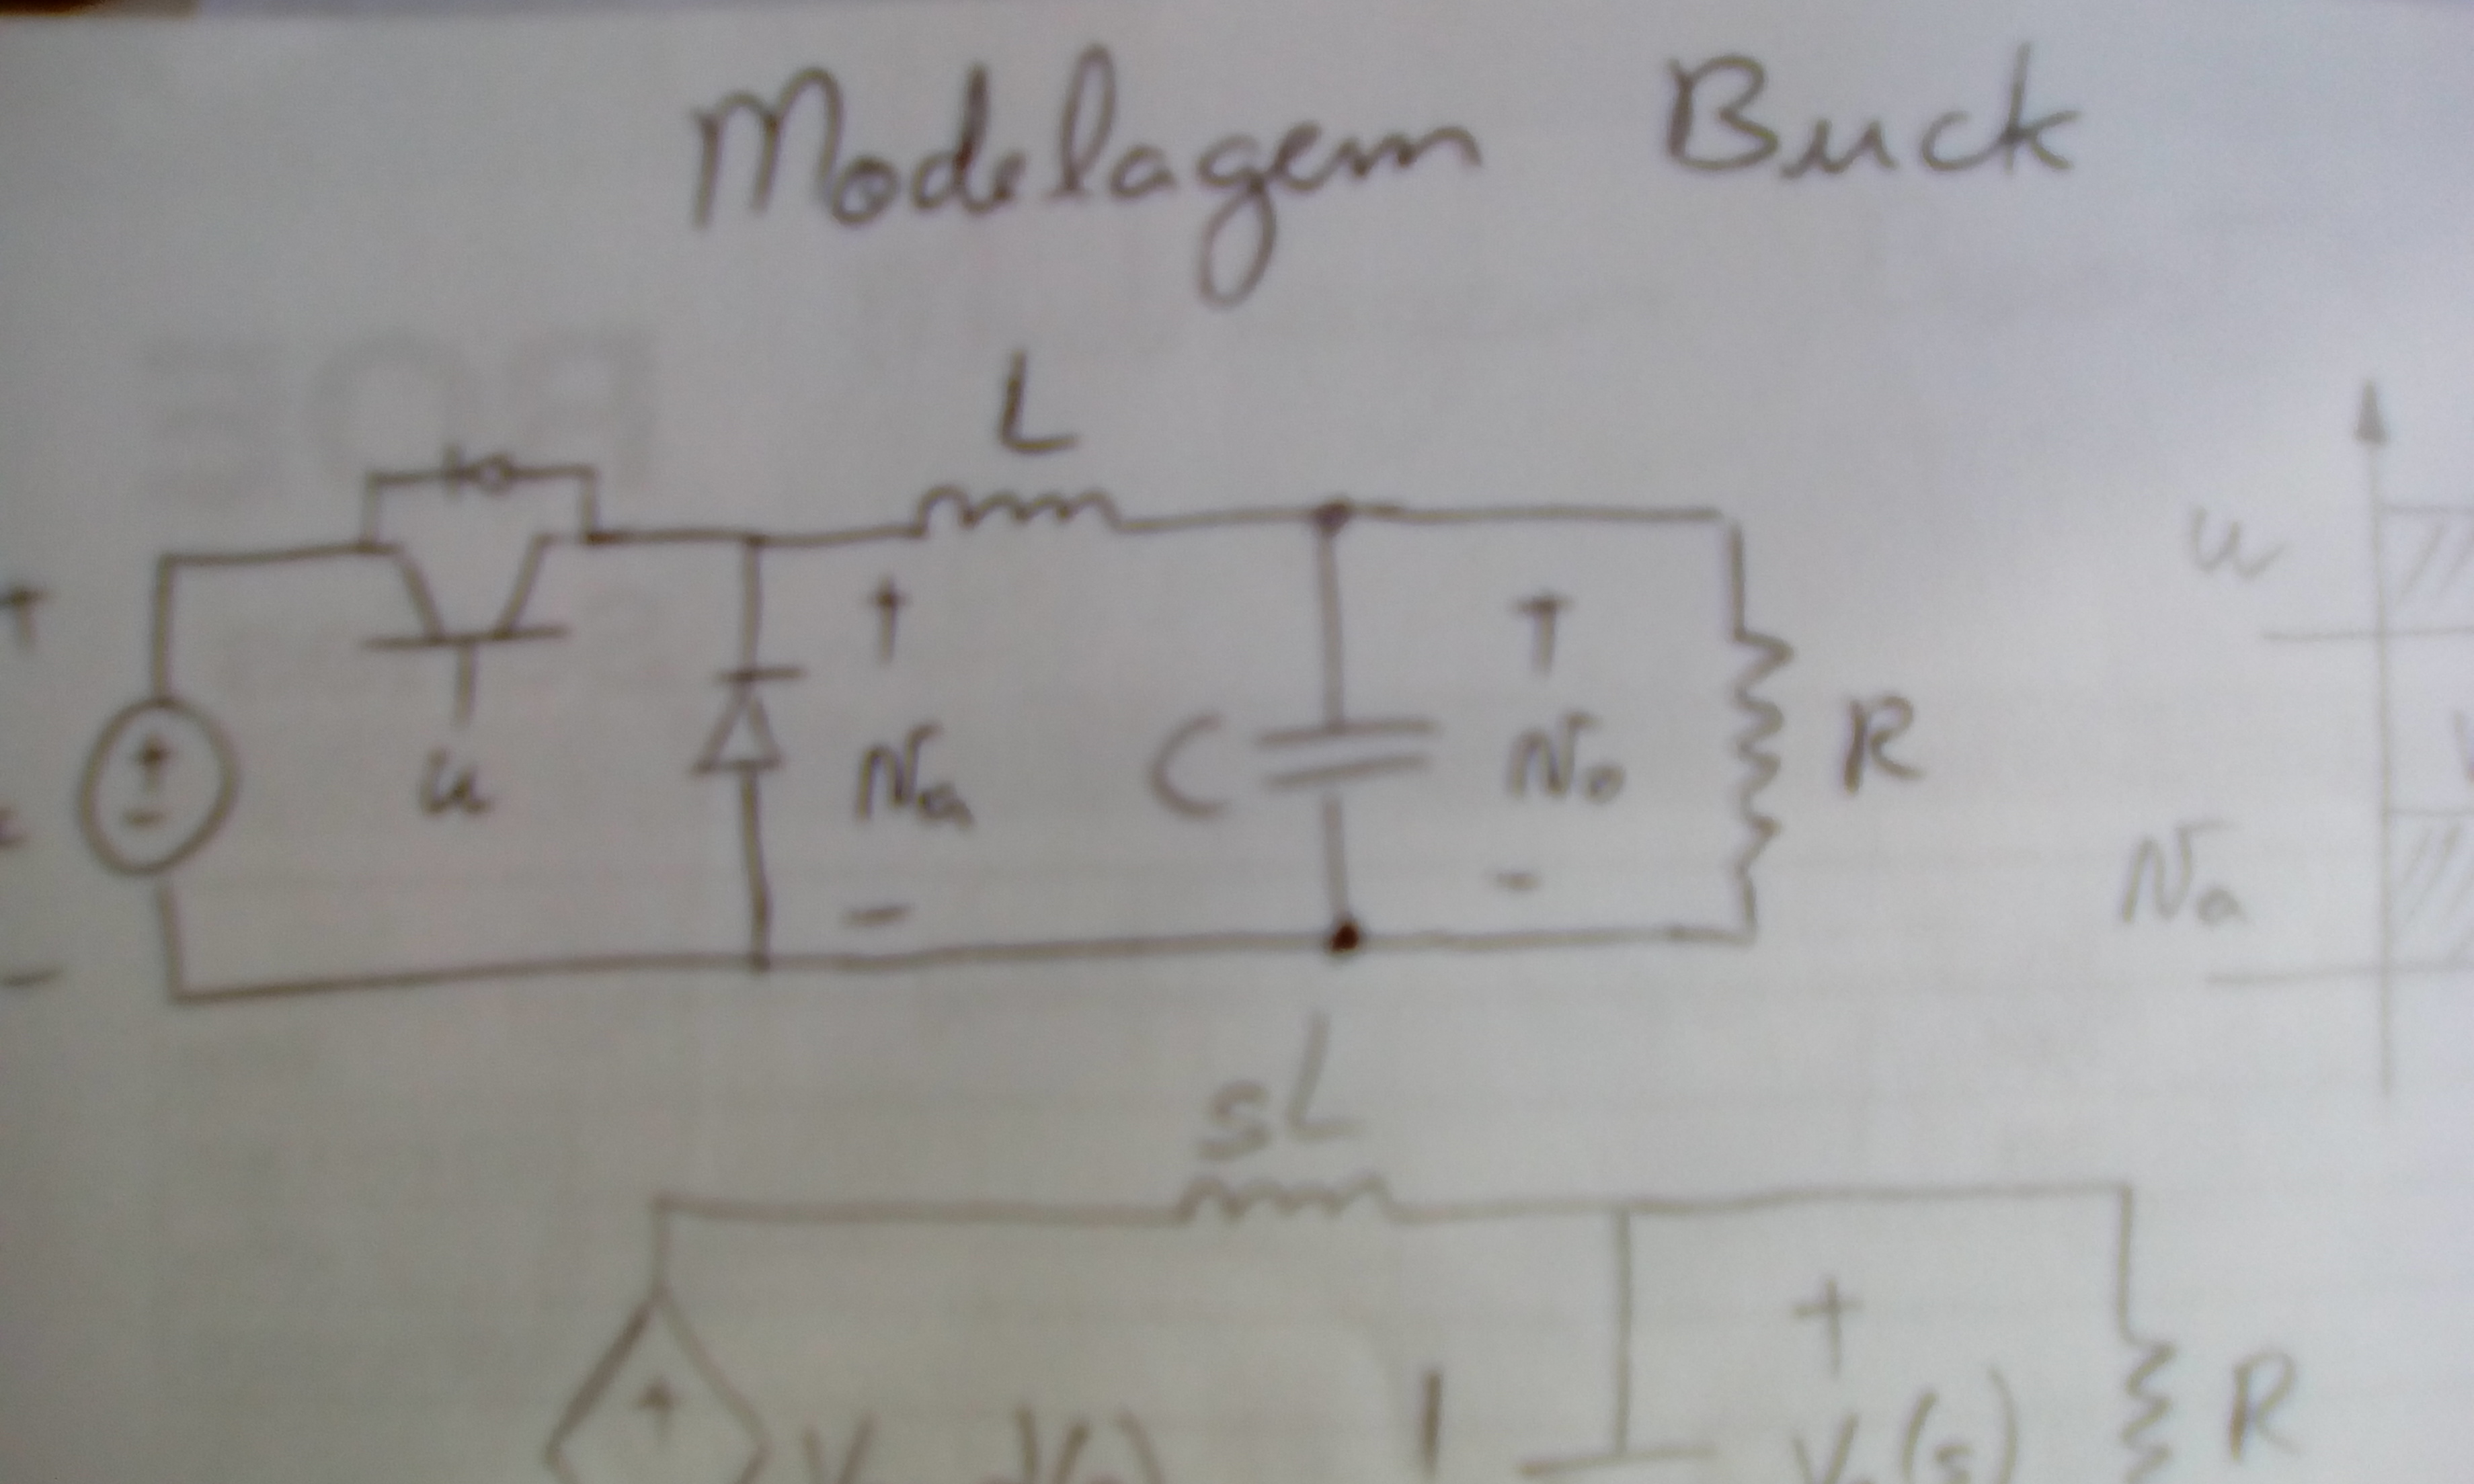 Modelagem Buck
L
+ + +
u
u va C vo R
va
- - -
sL
+
+
R
Vo(s)